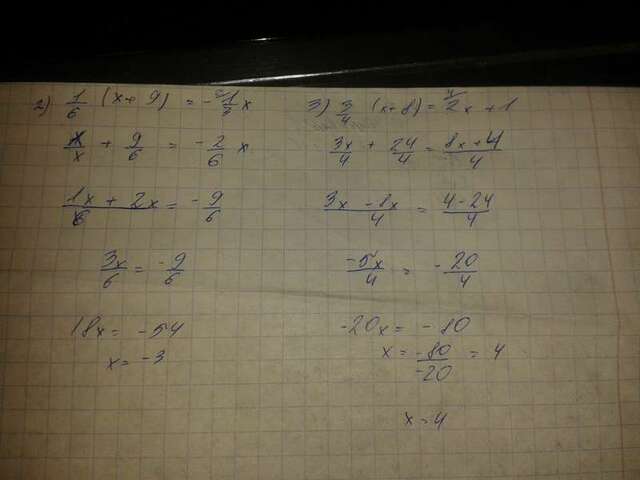 2) 1/6 (x + 9) = - 1/3 x
x/x + 9/6 = - 2/6 x
1x + 2x / 6 = - 9/6
3x/6 = - 9/6
18x = - 54
x = - 3
3) 3/4 (x + 8) = 2x + 1
3x/4 + 24/4 = 8x + 4 / 4
3x - 8x / 4 = 4 - 24 / 4
-5x/4 = - 20/4
-20x = - 80
x = -80/-20 = 4
x = 4